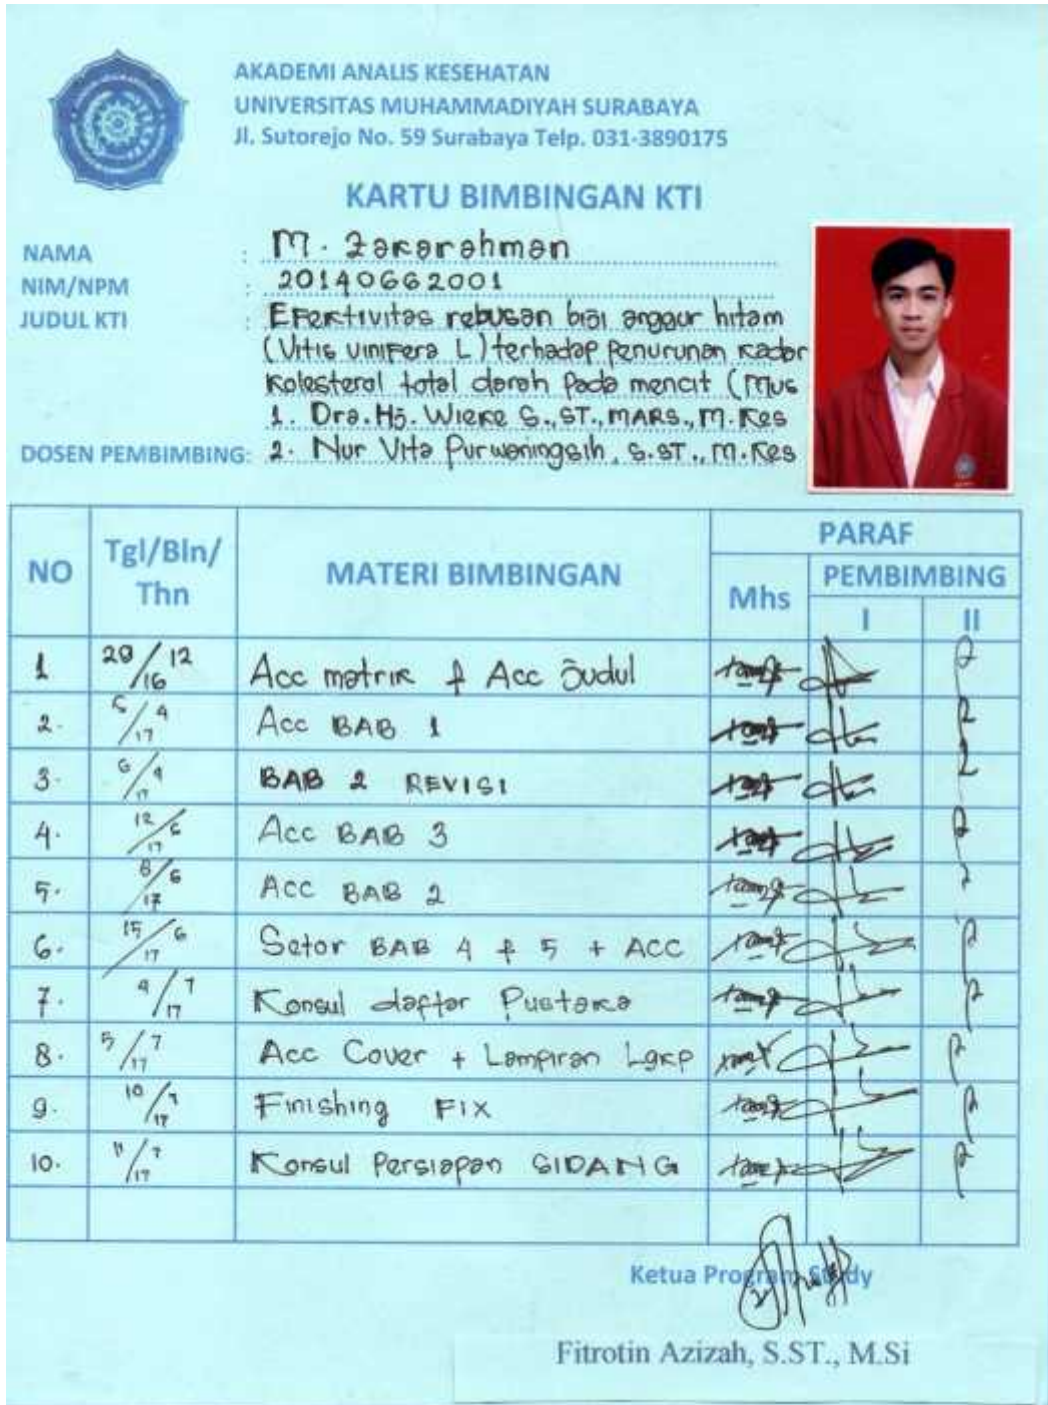 AKADEMI ANALIS KESEHATAN
UNIVERSITAS MUHAMMADIYAH SURABAYA
Jl. Sutorejo No. 59 Surabaya Telp. 031-3890175
KARTU BIMBINGAN KTI
NAMA : M. Zakarahman
NIM/NPM : 20140662001
JUDUL KTI : Efektivitas rebusan biji anggur hitam
(Vitis vinifera L) terhadap Penurunan Kadar
Kolesterol total darah Pada mencit (Mus
1. Dra. Hj. Wieke S., ST., MARS., M.Kes
DOSEN PEMBIMBING: 2. Nur Vita Purwaningsih, S.ST., M.Kes
NO Tgl/Bln/Thn MATERI BIMBINGAN PARAF
Mhs PEMBIMBING
I II
1 29/12/16 Acc matrik & Acc Judul
2. 5/4/17 Acc BAB 1
3. 6/4/17 BAB 2 REVISI
4. 12/6/17 Acc BAB 3
5. 8/6/17 Acc BAB 2
6. 15/6/17 Setor BAB 4 & 5 + ACC
7. 4/7/17 Konsul daftar Pustaka
8. 5/7/17 Acc Cover + Lampiran Lgkp
9. 10/7/17 Finishing FIX
10. 11/7/17 Konsul Persiapan SIDANG
Ketua Program Study
Fitrotin Azizah, S.ST., M.Si